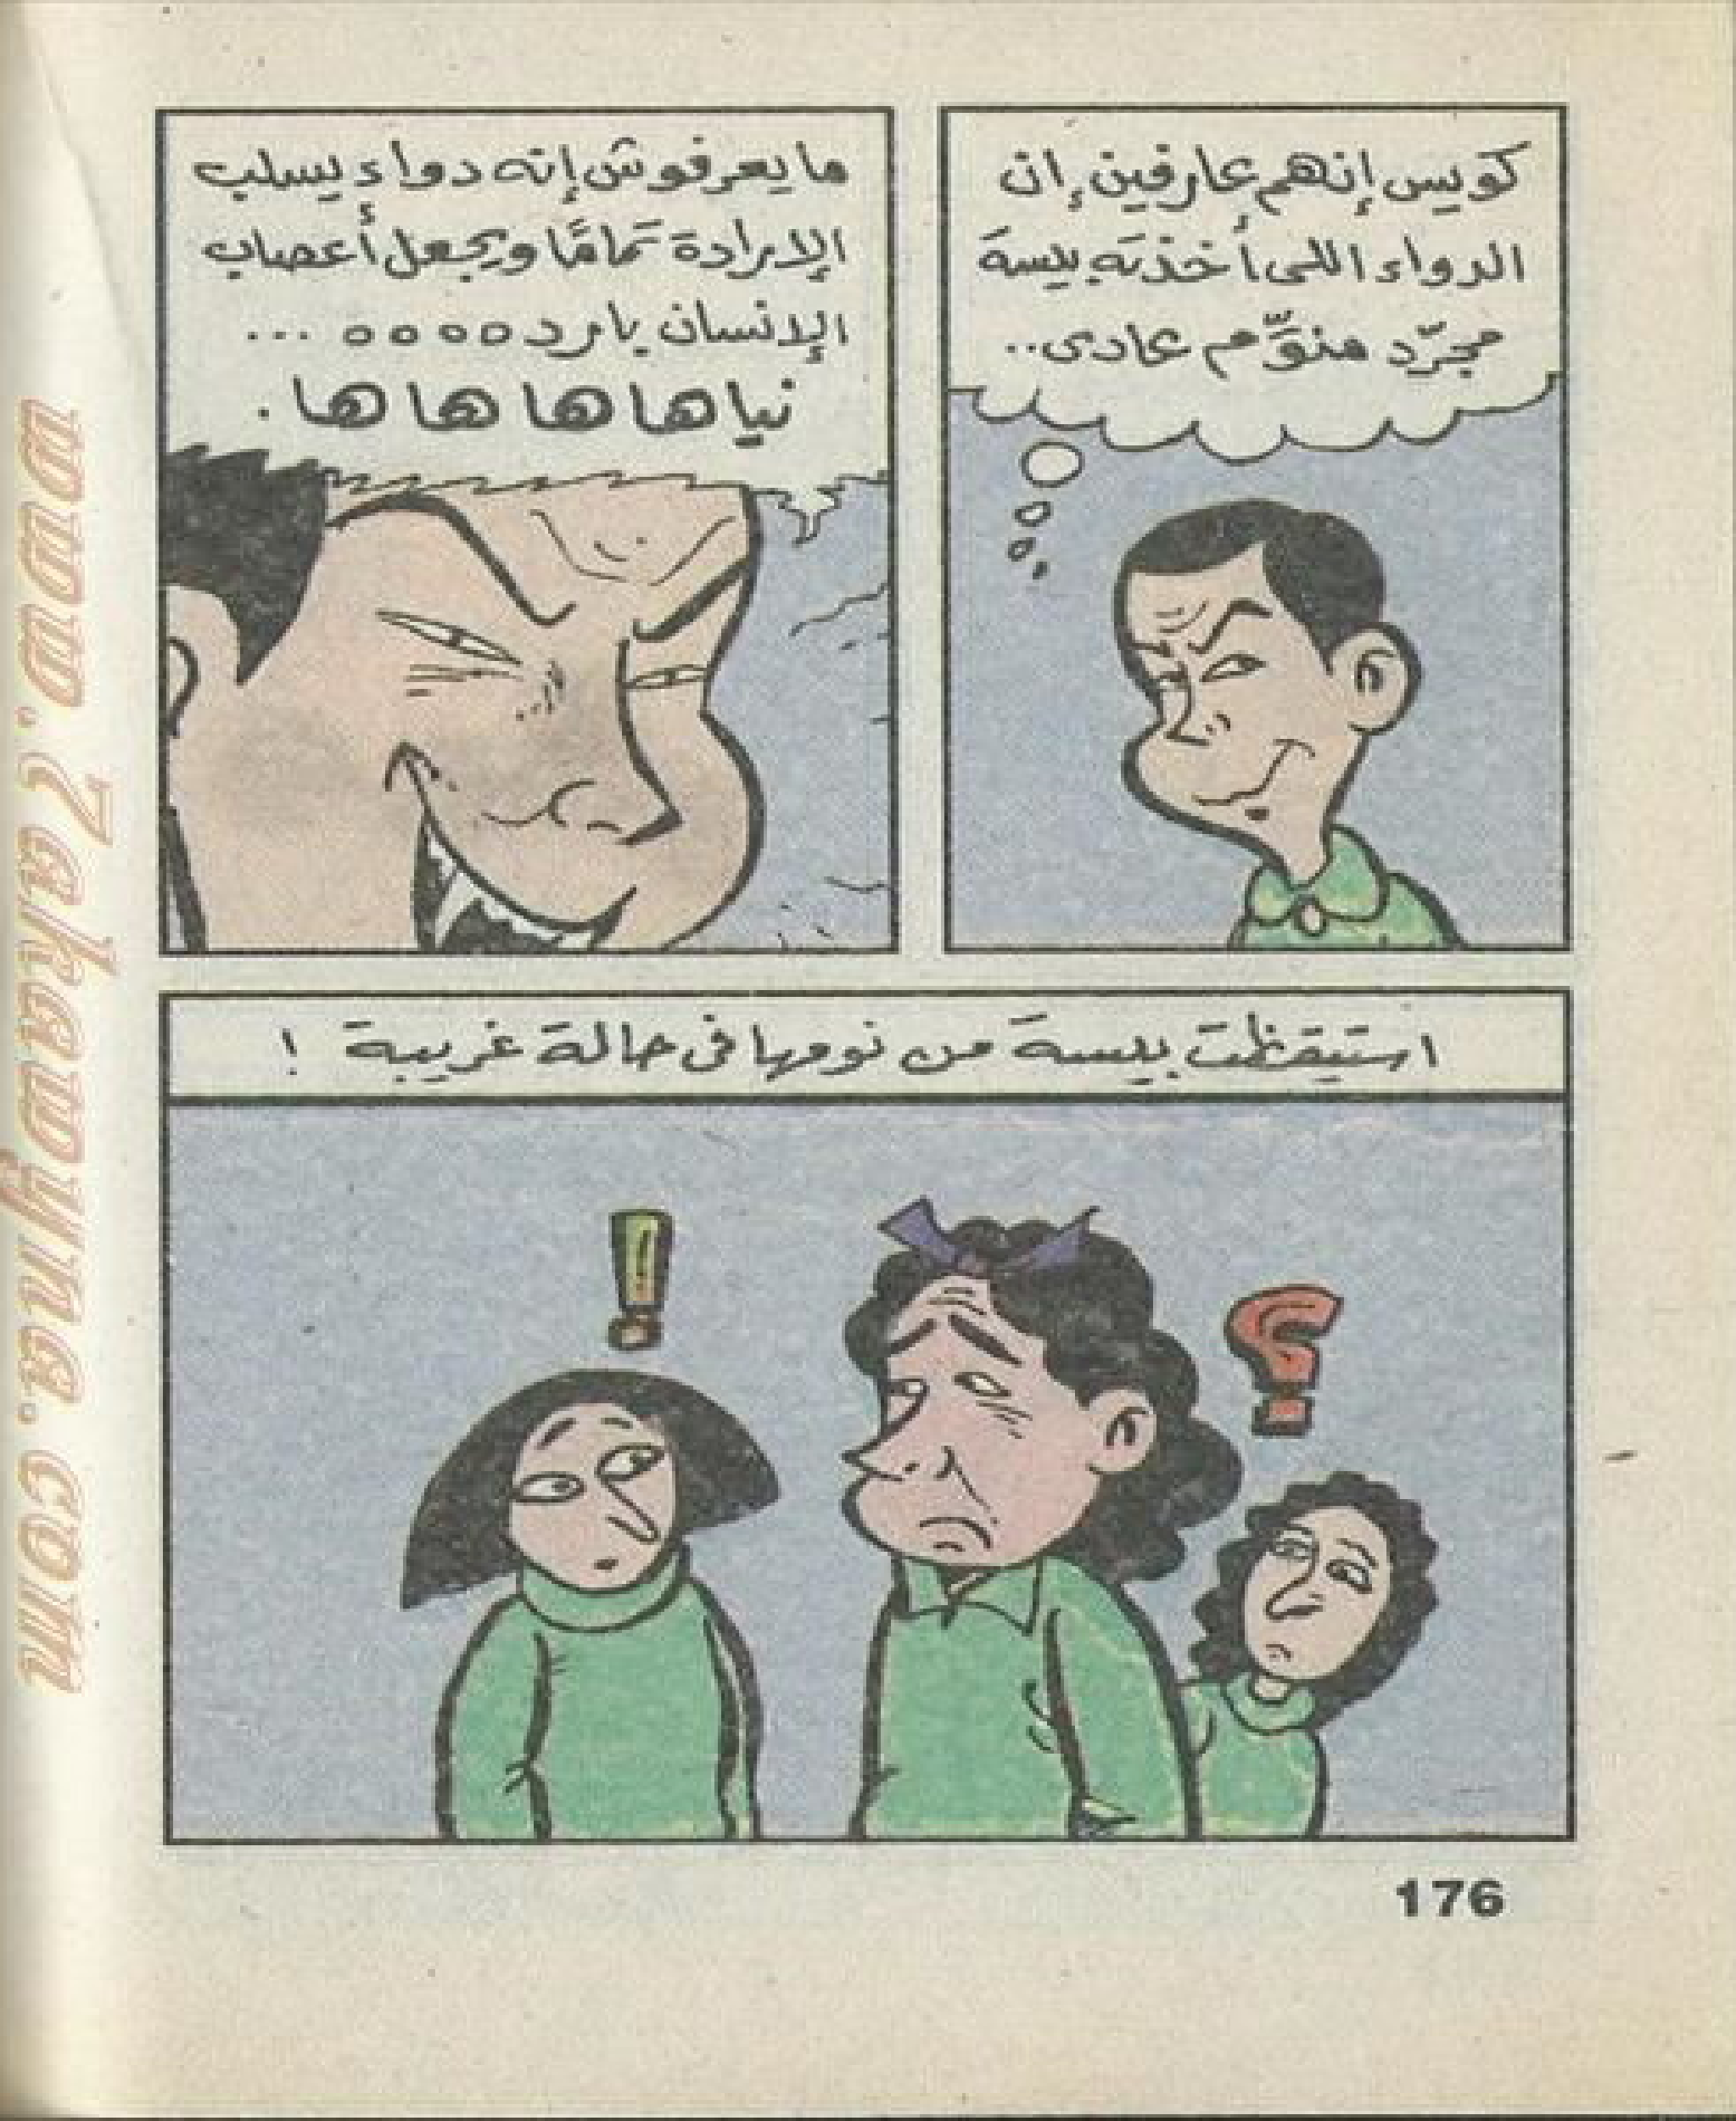 كويس إنهم عارفين إن
الدواء اللى أخذته بيسة
مجرّد منوّم عادى..
ما يعرفوش إنه دواء يسلب
الإرادة تمامًا ويجعل أعصاب
الإنسان بارد ه ه ه ه ...
نيا ها ها ها ها .
استيقظت بيسة من نومها فى حالة غريبة !
176
www.7akawyna.com